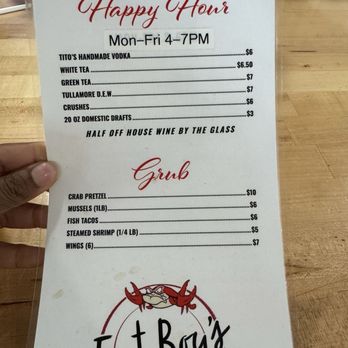 Happy Hour
Mon–Fri 4–7PM
TITO'S HANDMADE VODKA $6
WHITE TEA $6.50
GREEN TEA $7
TULLAMORE D.E.W $7
CRUSHES $6
20 OZ DOMESTIC DRAFTS $3
HALF OFF HOUSE WINE BY THE GLASS
Grub
CRAB PRETZEL $10
MUSSELS (1LB) $6
FISH TACOS $6
STEAMED SHRIMP (1/4 LB) $5
WINGS (6) $7
Fat Boy's